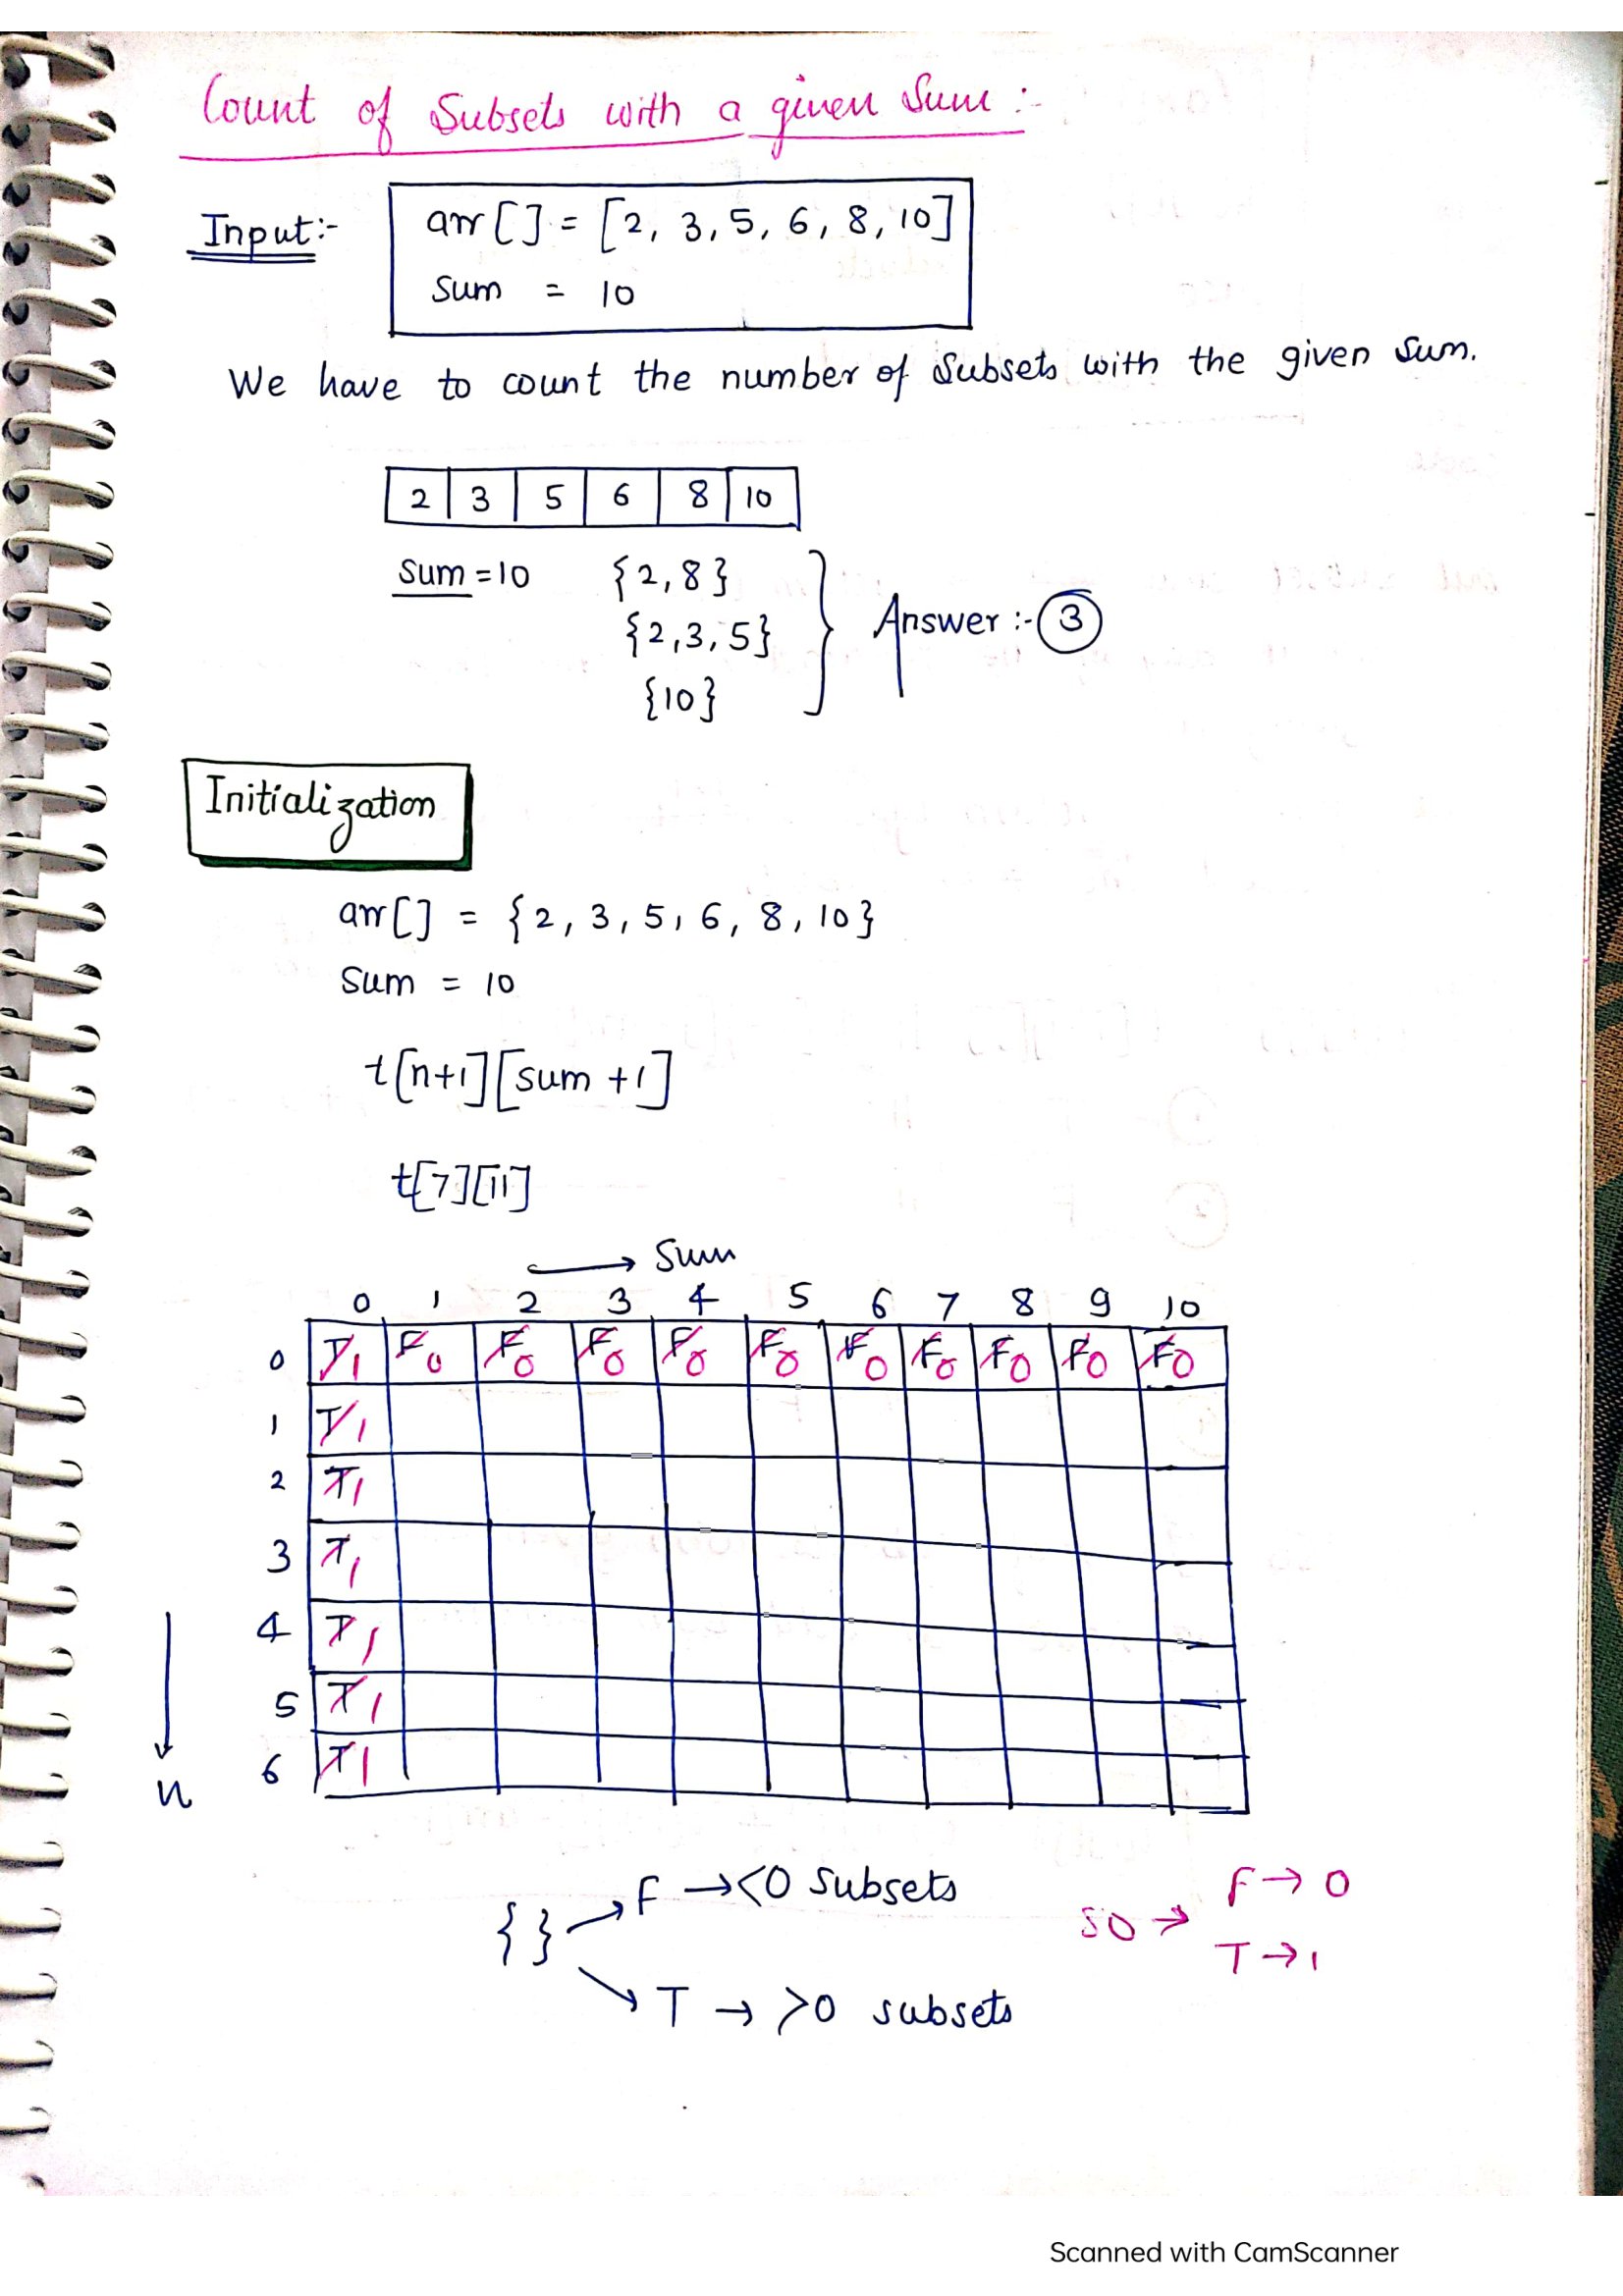 Count of Subsets with a given Sum :-
Input:-
arr [ ] = [2, 3, 5, 6, 8, 10]
Sum = 10
We have to count the number of Subsets with the given Sum.
2 3 5 6 8 10
Sum = 10 {2, 8}
{2, 3, 5}
{10}
Answer :- 3
Initialization
arr[ ] = {2, 3, 5, 6, 8, 10}
Sum = 10
t[n+1][sum +1]
t[7][11]
→ Sum
0 1 2 3 4 5 6 7 8 9 10
0 T1 F0 F0 F0 F0 F0 F0 F0 F0 F0 F0
1 T1
2 T1
3 T1
4 T1
5 T1
6 T1
n
F → <0 Subsets
{ }
T → >0 subsets
SO →
F → 0
T → 1
Scanned with CamScanner